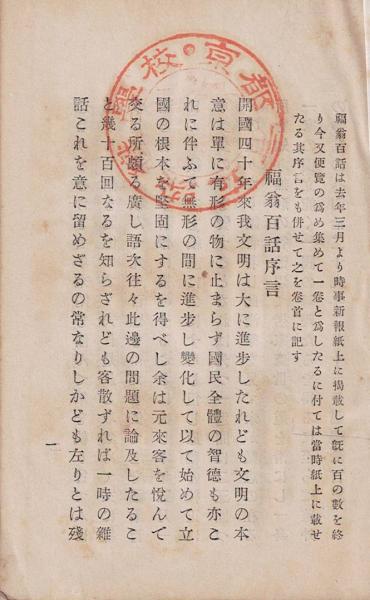 福翁百話は去年三月より時事新報紙上に掲載して既に百の數を終
り今又便覽の爲め集めて一卷と爲したるに付ては當時紙上に載せ
たる其序言をも併せて之を卷首に記す
福翁百話序言
開國四十年來我文明は大に進歩したれども文明の本
意は單に有形の物に止まらず國民全體の智德も亦こ
れに伴ふて無形の間に進歩し變化して以て始めて立
國の根本を堅固にするを得べし余は元來客を悅んで
交る所頗る廣し語次往々此邊の問題に論及したるこ
と幾十百回なるを知らざれども客散ずれば一時の雜
話これを意に留めざるの常なりしかども左りとは殘
一